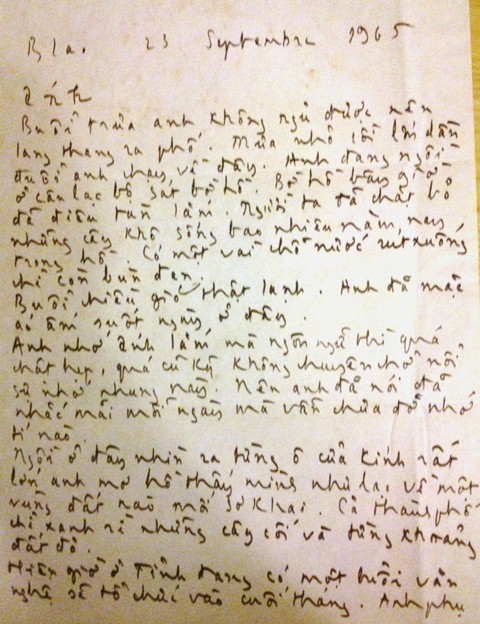 Blao. 23 Septembre 1965
Ánh
Buổi trưa anh không ngủ được nên
lang thang ra phố. Mưa nhỏ rồi lớn dần
đuổi anh chạy về đây. Anh đang ngồi
ở câu lạc bộ sát bờ hồ. Bờ hồ bây giờ
đã điêu tàn lắm. Người ta đã chặt bỏ
những cây khô sống bao nhiêu năm nay
trong hồ. Có một vài chỗ nước rút xuống
chỉ còn bùn đen.
Buổi chiều gió thật lạnh. Anh đã mặc
áo ấm suốt ngày ở đây.
Anh nhớ Ánh lắm mà ngôn ngữ thì quá
chật hẹp, quá cũ kỹ không chuyên chở nổi
sự nhớ nhung này. Nên anh đã nói đã
nhắc mãi mỗi ngày mà vẫn chưa đỡ nhớ
tí nào.
Ngồi ở đây nhìn ra từng ô cửa kính rất
lớn anh mơ hồ thấy mình như lạc về một
vùng đất nào mới sơ khai. Cả thành phố
chỉ xanh rì những cây cối và từng khoảng
đất đỏ.
Hiện giờ ở Tỉnh đang có một buổi văn
nghệ sẽ tổ chức vào cuối tháng. Anh phụ